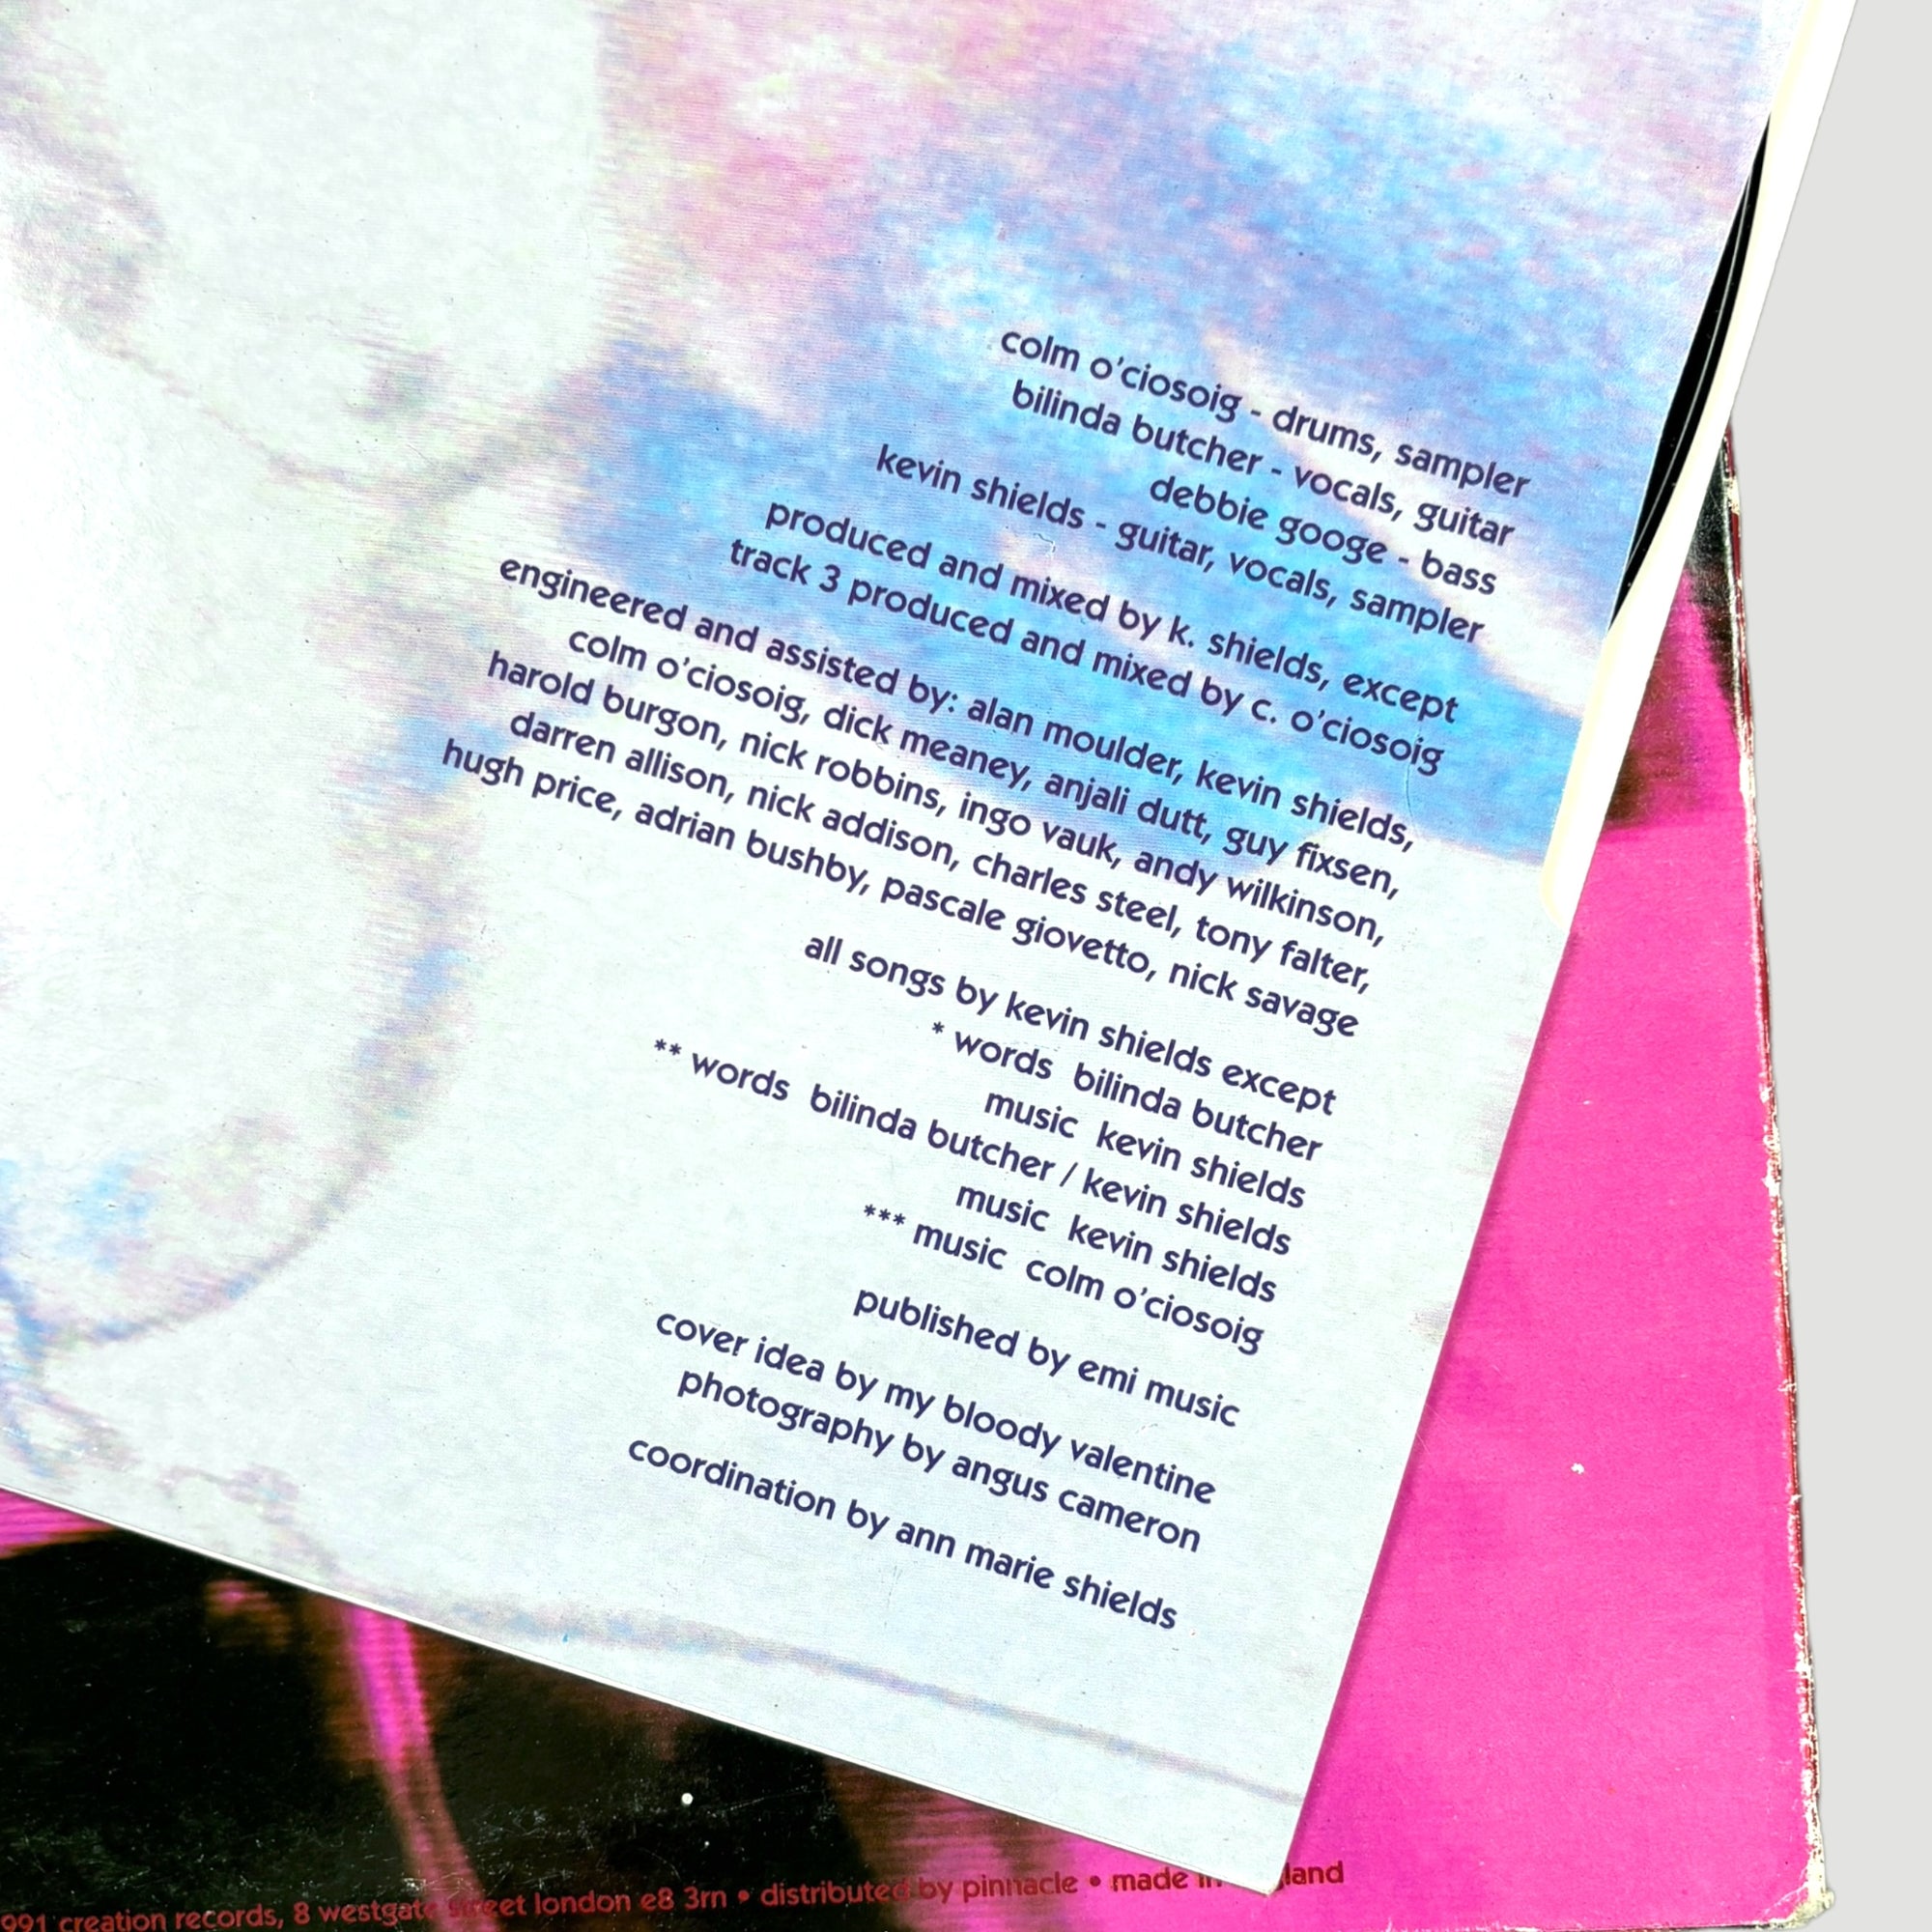 colm o'ciosoig - drums, sampler
bilinda butcher - vocals, guitar
debbie googe - bass
kevin shields - guitar, vocals, sampler
produced and mixed by k. shields, except
track 3 produced and mixed by c. o'ciosoig
engineered and assisted by: alan moulder, kevin shields,
colm o'ciosoig, dick meaney, anjali dutt, guy fixsen,
harold burgon, nick robbins, ingo vauk, andy wilkinson,
darren allison, nick addison, charles steel, tony falter,
hugh price, adrian bushby, pascale giovetto, nick savage
all songs by kevin shields except
* words bilinda butcher
music kevin shields
** words bilinda butcher / kevin shields
music kevin shields
*** music colm o'ciosoig
published by emi music
cover idea by my bloody valentine
photography by angus cameron
coordination by ann marie shields
991 creation records, 8 westgate street london e8 3rn • distributed by pinnacle • made in land